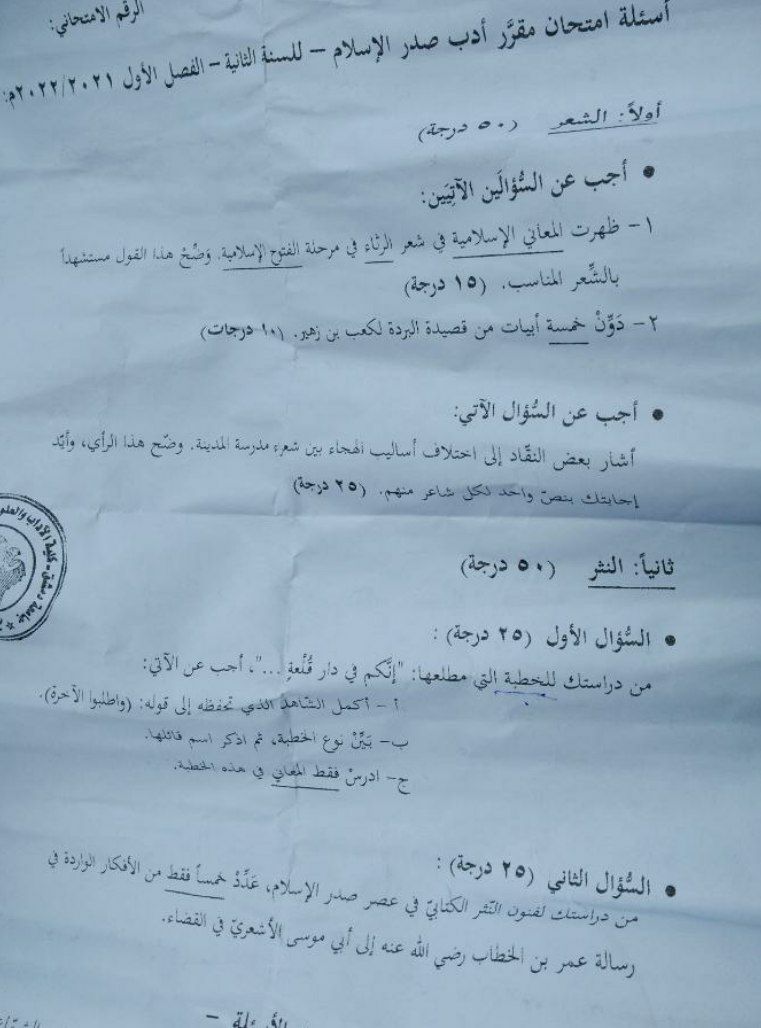 الرقم الامتحاني:
أسئلة امتحان مقرَّر أدب صدر الإسلام – للسنة الثانية – الفصل الأول ٢٠٢٢/٢٠٢١م:
أولاً: الشعر (٥٠ درجة)
• أجب عن السُّؤالَين الآتِيَين:
١- ظهرت المعاني الإسلامية في شعر الرثاء في مرحلة الفتوح الإسلامية. وَضِّحْ هذا القول مستشهداً
بالشِّعر المناسب. (١٥ درجة)
٢- دَوِّنْ خمسة أبيات من قصيدة البردة لكعب بن زهير. (١٠ درجات)
• أجب عن السُّؤال الآتي:
أشار بعض النقّاد إلى اختلاف أساليب الهجاء بين شعراء مدرسة المدينة. وضّح هذا الرأي، وأيّد
إجابتك بنصّ واحد لكل شاعر منهم. (٢٥ درجة)
ثانياً: النثر (٥٠ درجة)
• السُّؤال الأول (٢٥ درجة) :
من دراستك للخطبة التي مطلعها: "إنَّكم في دار قُلْعةٍ ..."، أجب عن الآتي:
أ - أكمل الشّاهد الذي تحفظه إلى قوله: (واطلبوا الآخرة).
ب- بَيِّنْ نوع الخطبة، ثم اذكر اسم قائلها.
ج- ادرسْ فقط المعاني في هذه الخطبة.
• السُّؤال الثاني (٢٥ درجة) :
من دراستك لفنون النّثر الكتابيّ في عصر صدر الإسلام، عَدِّدْ خمساً فقط من الأفكار الواردة في
رسالة عمر بن الخطاب رضي الله عنه إلى أبي موسى الأشعريّ في القضاء.